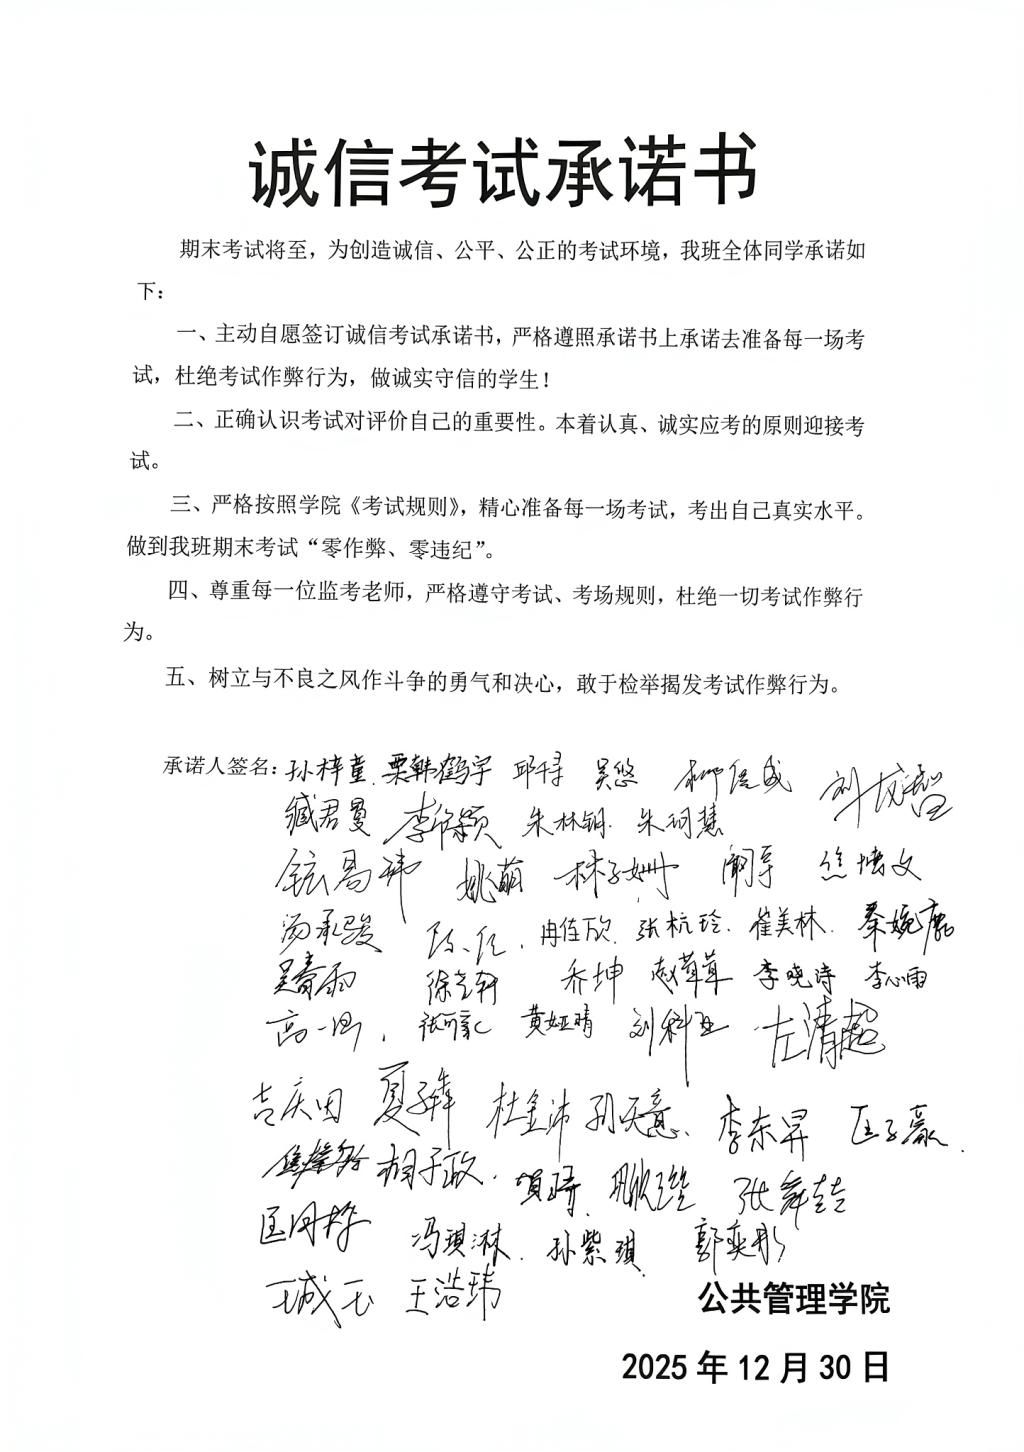 诚信考试承诺书
期末考试将至，为创造诚信、公平、公正的考试环境，我班全体同学承诺如
下：
一、主动自愿签订诚信考试承诺书，严格遵照承诺书上承诺去准备每一场考
试，杜绝考试作弊行为，做诚实守信的学生！
二、正确认识考试对评价自己的重要性。本着认真、诚实应考的原则迎接考
试。
三、严格按照学院《考试规则》，精心准备每一场考试，考出自己真实水平。
做到我班期末考试“零作弊、零违纪”。
四、尊重每一位监考老师，严格遵守考试、考场规则，杜绝一切考试作弊行
为。
五、树立与不良之风作斗争的勇气和决心，敢于检举揭发考试作弊行为。
承诺人签名：孙梓童 栗韩鹤宇 吴悠
臧君曼
姚萌 林子姗
汤承骏 冉佳欣 张杭玲 崔美林
乔坤 赵茸茸 李晓诗 李心雨
黄娅晴 左清超
吉庆田 夏子犇 杜金沛 孙天意 李东昇 匡子赢
胡于政 张舜喆
冯琪淋 孙紫琪 郭奕彤
王浩玮
公共管理学院
2025年12月30日